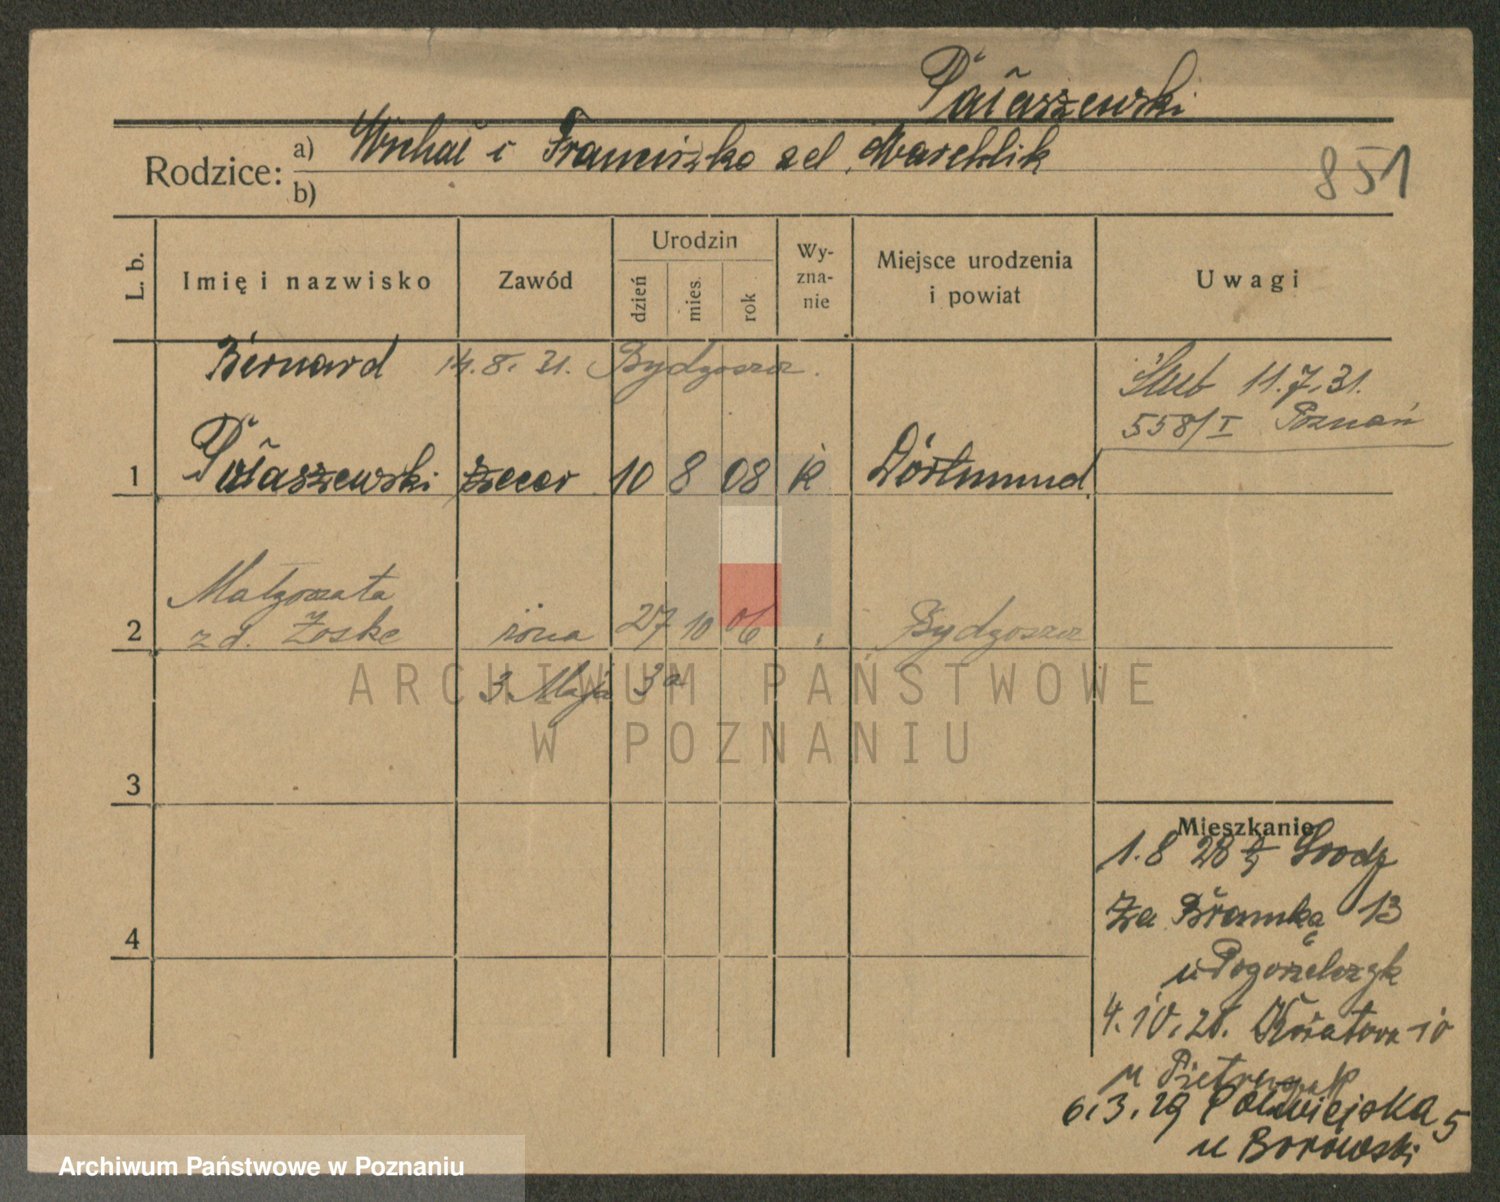 Pałaszewski
Rodzice: a) Michał i Franciszka zd. Marchlik
b)
851
L. b.
Imię i nazwisko
Zawód
Urodzin
dzień
mies.
rok
Wy-
zna-
nie
Miejsce urodzenia
i powiat
Uwagi
Bernard 14.8.31. Bydgoszcz.
Ślub 11.7.31.
558/I Poznań
1 Pałaszewski zecer 10 8 08 k Dortmund
Małgorzata
2 zd. Zoske żona 27 10 06 Bydgoszcz
3 Maja 3a
3
4
Mieszkanie
1.8 28 Srodz
Za Bramką 13
u Pogorzelczyk
4.10.28. Kwiatowa 10
u Pietrzyak
6.3.29 Półwiejska 5
u Borowski
ARCHIWUM PAŃSTWOWE
W POZNANIU
Archiwum Państwowe w Poznaniu